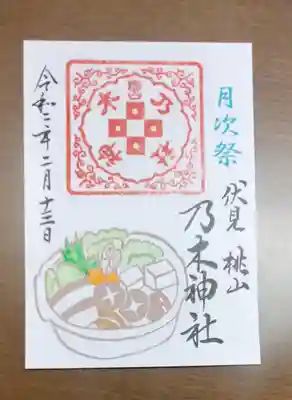 月次祭
伏見 桃山
乃木神社
乃木神社
令和二年二月十三日